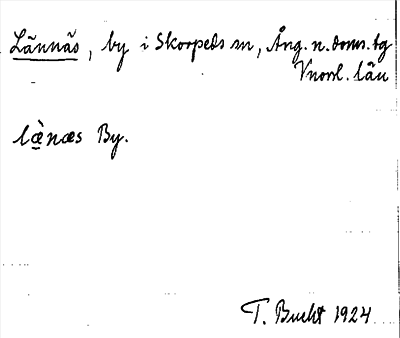 Lännäs, by i Skorpeds sn, Ång. n. doms. tg
Vnorrl. län
læ̀næs By.
T. Bucht 1924